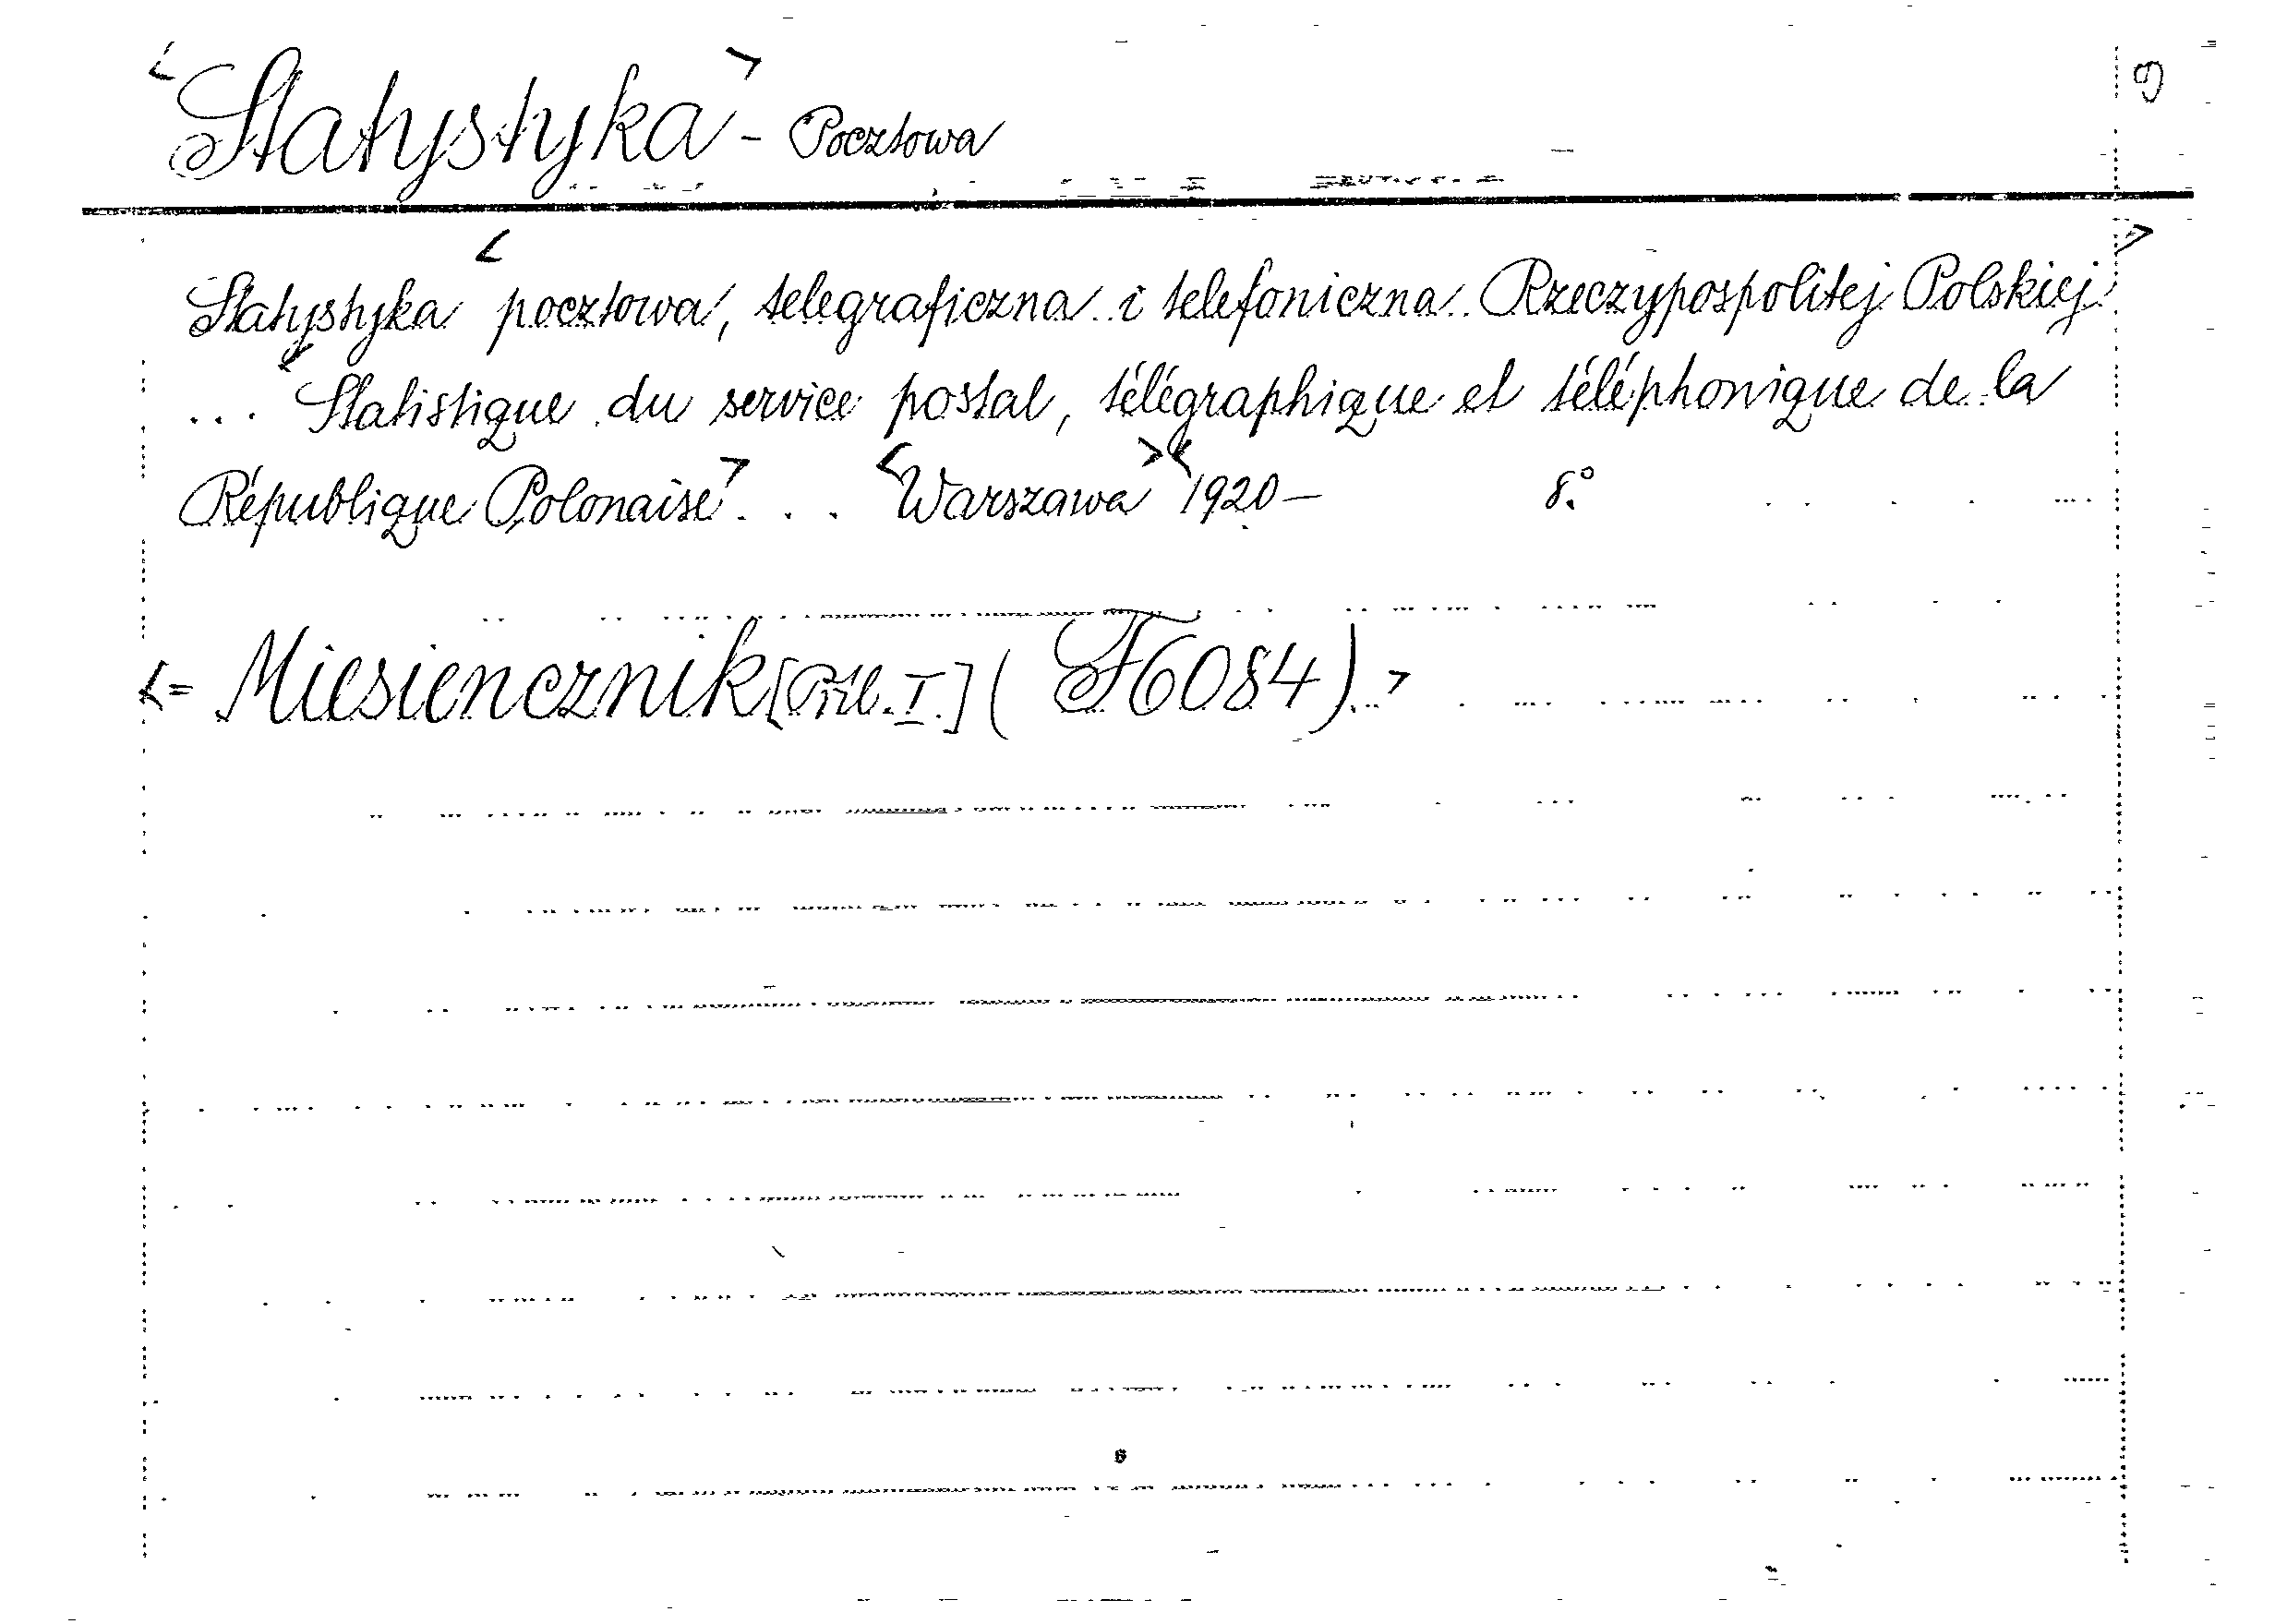 <Statystyka> - Pocztowa
Statystyka <pocztowa, telegraficzna i telefoniczna Rzeczypospolitej Polskiej>
... <Statistique du service postal, télégraphique et téléphonique de la
République Polonaise> ... <Warszawa> <1920— 8°.
<= Miesiencznik [Příl. I.] (F6084).>
6